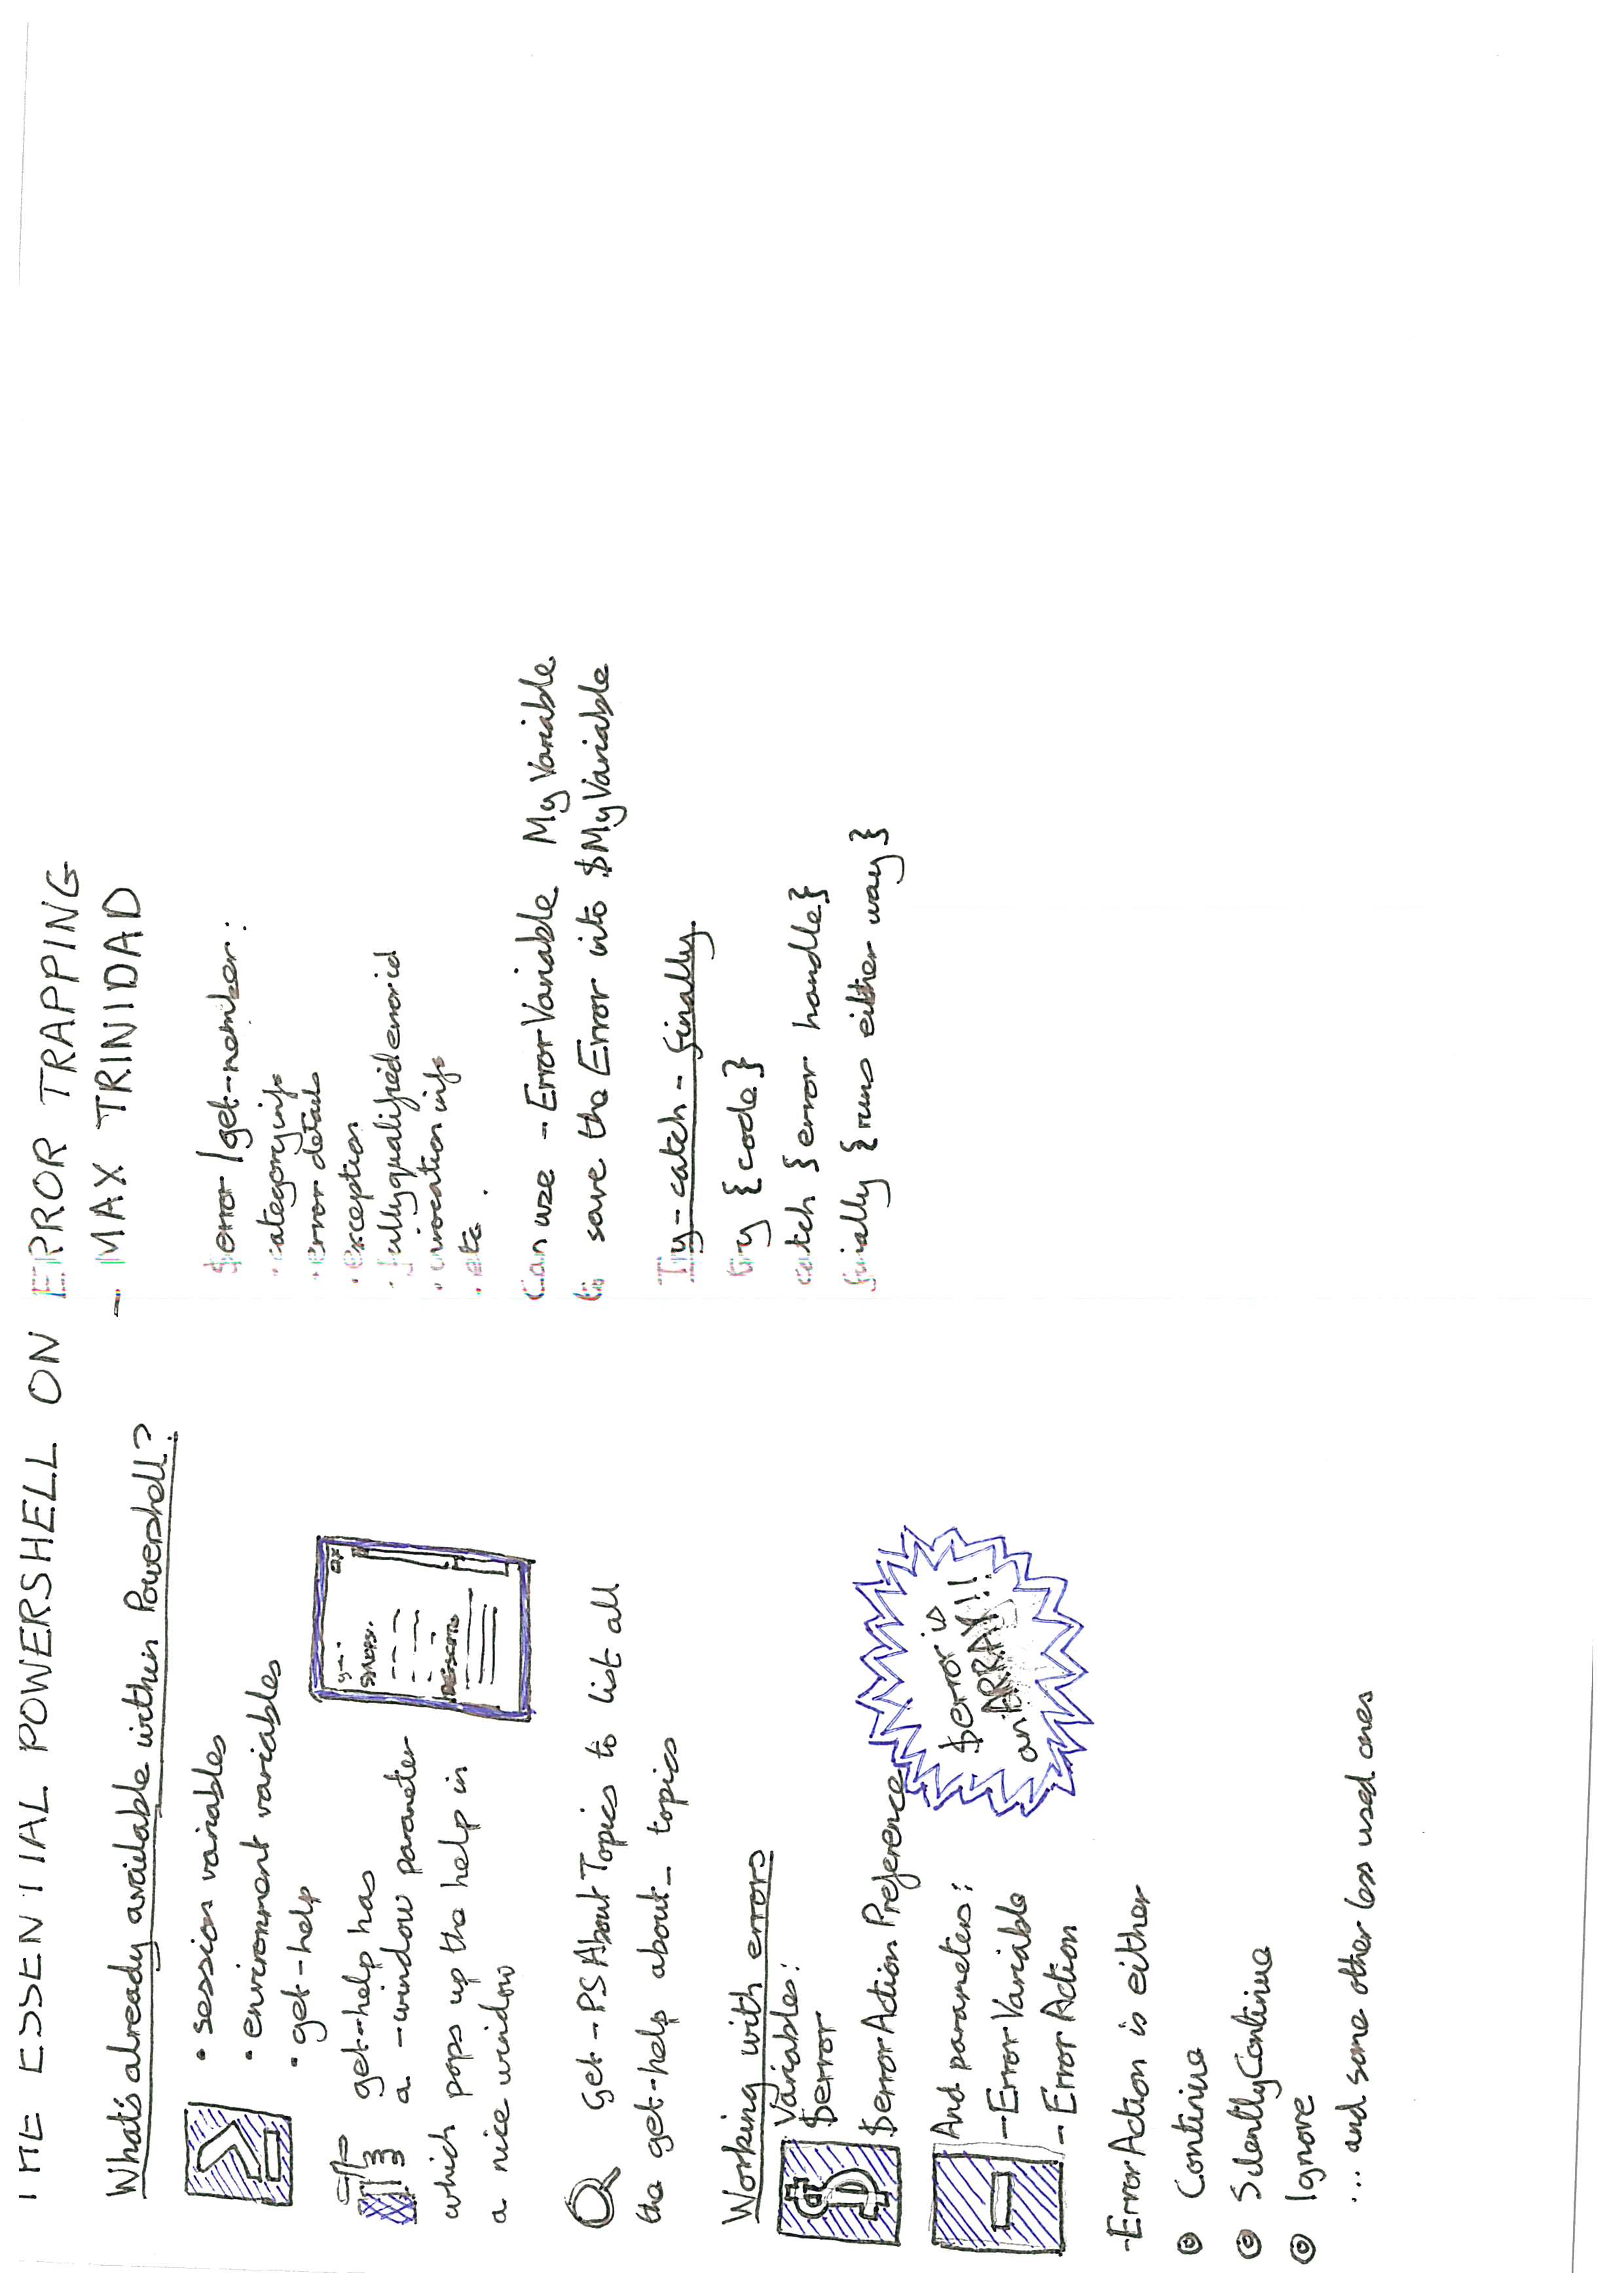 THE ESSENTIAL POWERSHELL ON ERROR TRAPPING
- MAX TRINIDAD
What's already available within Powershell?
• session variables
• environment variables
• get-help
get-help has
a -window parameter
which pops up the help in
a nice window
get-PSAboutTopics to list all
the get-help about_ topics
Working with errors
Variables:
$error
$errorActionPreference
$error is
an ARRAY!!
And parameters:
-ErrorVariable
-ErrorAction
-ErrorAction is either
Continue
SilentlyContinue
Ignore
... and some other less used ones
$error | get-member:
• categoryinfo
• error details
• exception
• fullyqualifiederrorid
• invocation info
• etc.
Can use -ErrorVariable MyVariable
to save the Error into $MyVariable
Try-catch-finally
try {code}
catch {error handle}
finally {runs either way}